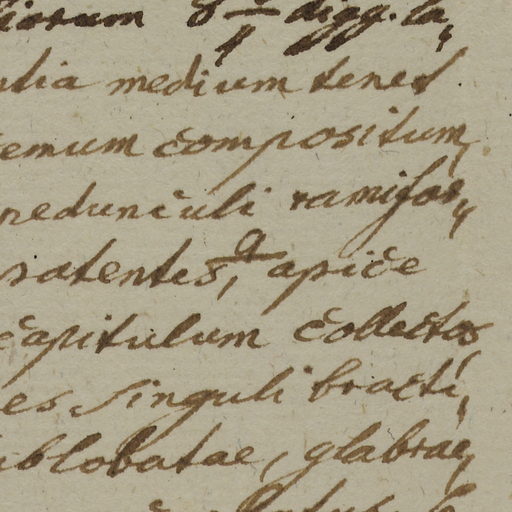 liorum 8 digg. la,
ntia medium tenet
emum compositum,
pedunculi ramifor,
patentes, a apice
capitulum collectos
es singuli bracti,
ublobatae, glabrae,